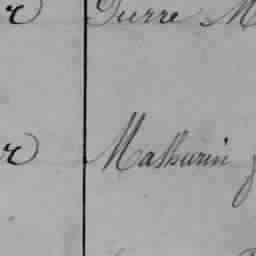 r Pierre M
r Mathurin